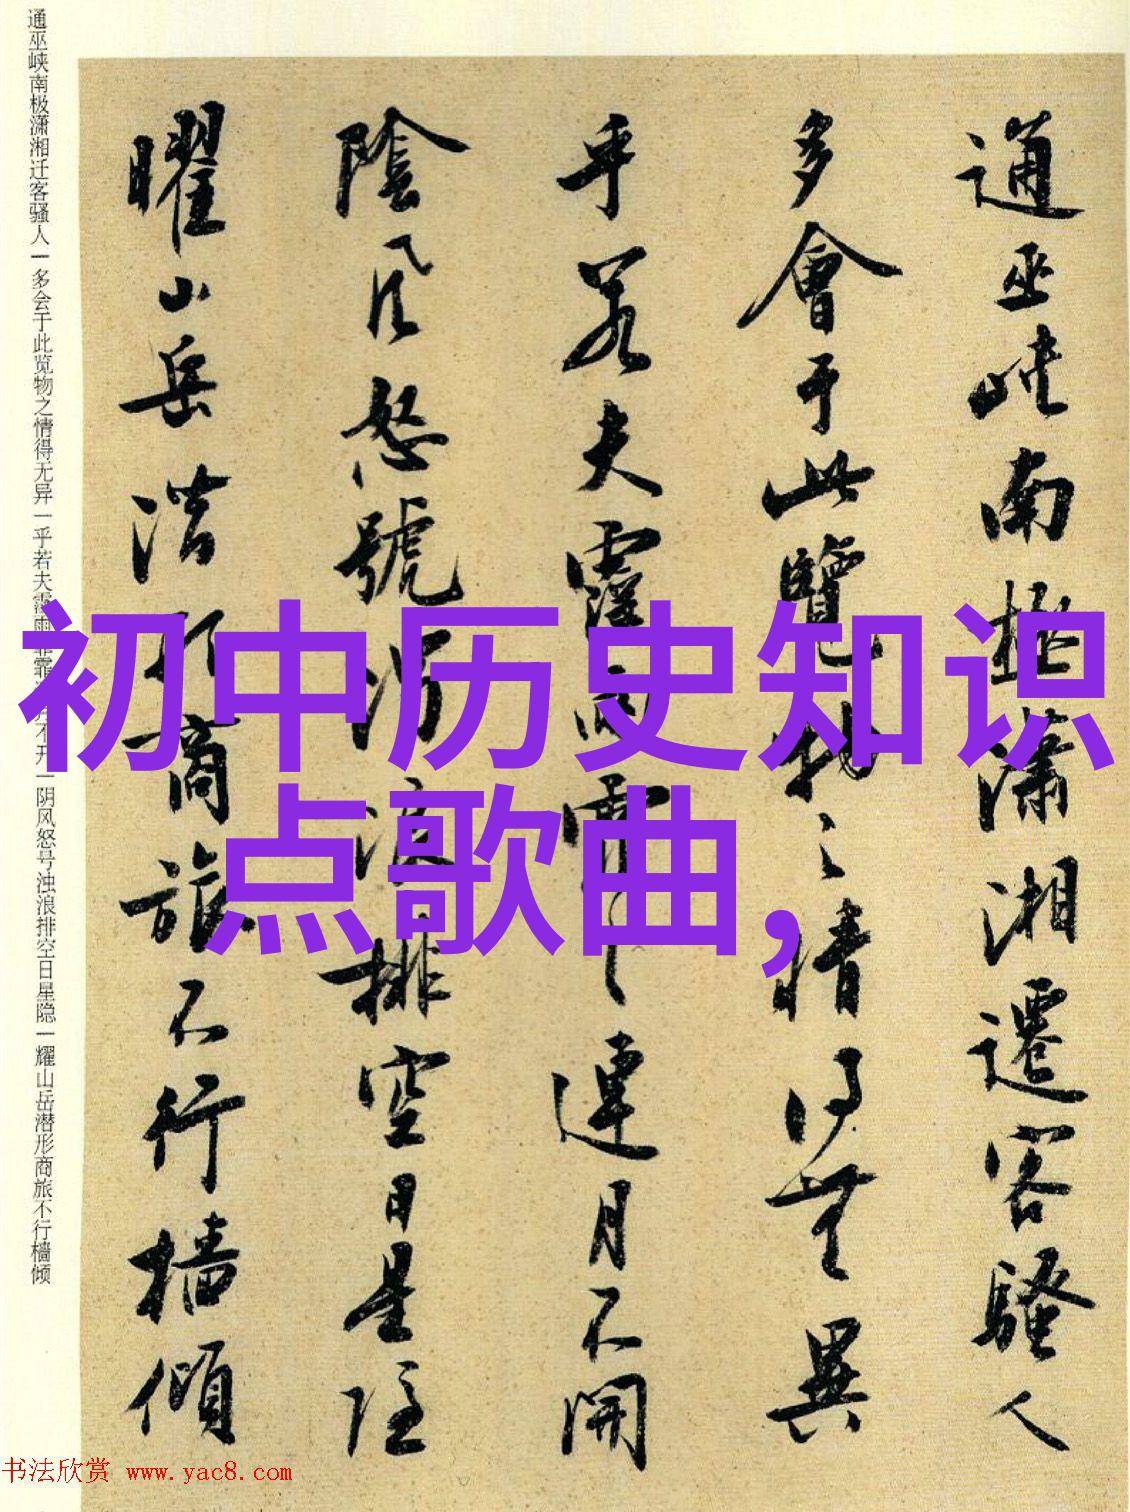 通巫峡南极潇湘迁客骚人一多会于此览物之情得无异一乎若夫霪雨霏霏连月不开一阴风怒号浊浪排空日星隐一耀山岳潜形商旅不行樯倾
通巫峡南極瀟湘遷客騷人
多會于此覽物之情得無異
乎若夫霪雨霏〻連月不開
陰風怒號濁浪排空日星隱
曜山岳潛形商旅不行檣傾
初中历史知识
点歌曲,
书法欣赏 www.yac8.com